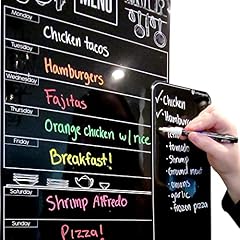 MENU
Monday
Chicken tacos
Tuesday
Hamburgers
Wednesday
Fajitas
Thursday
Orange chicken w/ rice
Friday
Breakfast!
Saturday
Shrimp Alfredo
Sunday
Pizza!
✓ Chicken
✓ Hamburger
✓ lettuce
tomato
Shrimp
Ground meat
onions
garlic
frozen pizza